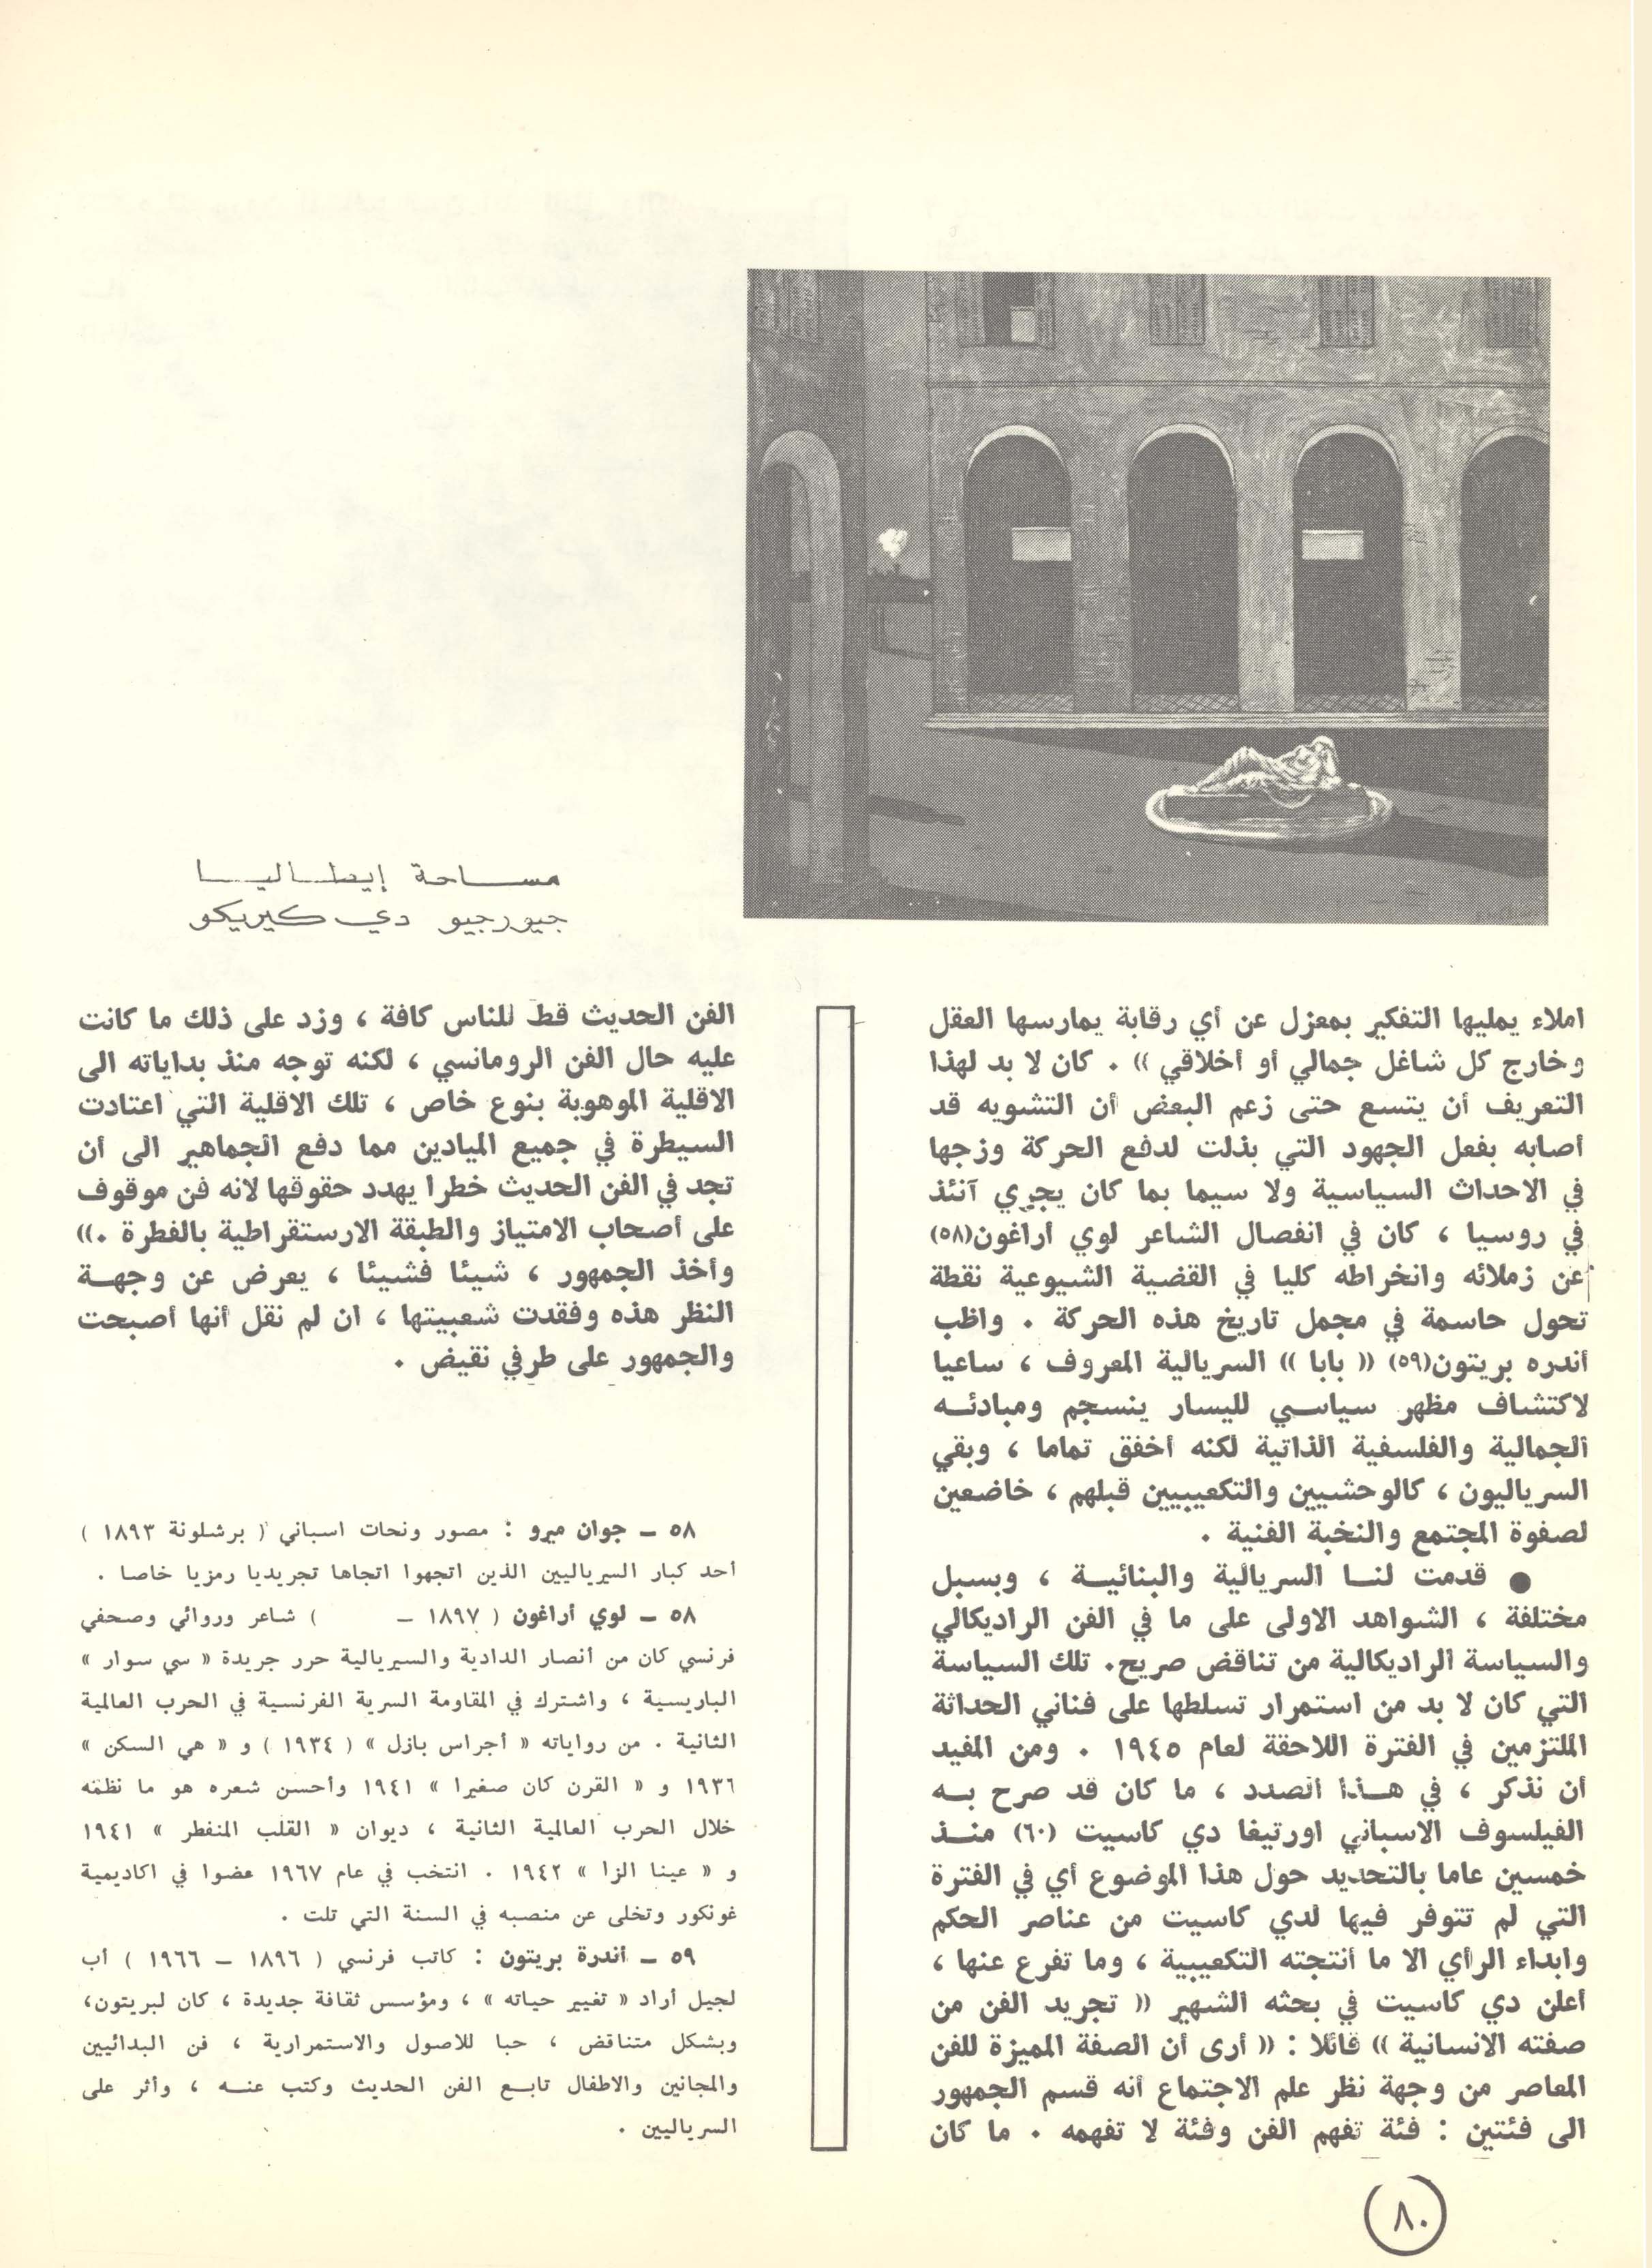 مساحة إيطاليا
جيورجيو دي كيريكو
املاء يمليها التفكير بمعزل عن أي رقابة يمارسها العقل
وخارج كل شاغل جمالي أو أخلاقي » . كان لا بد لهذا
التعريف أن يتسع حتى زعم البعض أن التشويه قد
أصابه بفعل الجهود التي بذلت لدفع الحركة وزجها
في الاحداث السياسية ولا سيما بما كان يجري آنئذ
في روسيا ، كان في انفصال الشاعر لوي أراغون(٥٨)
عن زملائه وانخراطه كليا في القضية الشيوعية نقطة
تحول حاسمة في مجمل تاريخ هذه الحركة . واظب
أندره بريتون(٥٩) « بابا » السريالية المعروف ، ساعيا
لاكتشاف مظهر سياسي لليسار ينسجم ومبادئه
الجمالية والفلسفية الذاتية لكنه أخفق تماما ، وبقي
السرياليون ، كالوحشيين والتكعيبيين قبلهم ، خاضعين
لصفوة المجتمع والنخبة الفنية .
● قدمت لنا السريالية والبنائية ، وبسبل
مختلفة ، الشواهد الاولى على ما في الفن الراديكالي
والسياسة الراديكالية من تناقض صريح. تلك السياسة
التي كان لا بد من استمرار تسلطها على فناني الحداثة
الملتزمين في الفترة اللاحقة لعام ١٩٤٥ . ومن المفيد
أن نذكر ، في هذا الصدد ، ما كان قد صرح به
الفيلسوف الاسباني اورتيغا دي كاسيت (٦٠) منذ
خمسين عاما بالتحديد حول هذا الموضوع أي في الفترة
التي لم تتوفر فيها لدي كاسيت من عناصر الحكم
وابداء الرأي الا ما أنتجته التكعيبية ، وما تفرع عنها ،
أعلن دي كاسيت في بحثه الشهير « تجريد الفن من
صفته الانسانية » قائلا : « أرى أن الصفة المميزة للفن
المعاصر من وجهة نظر علم الاجتماع أنه قسم الجمهور
الى فئتين : فئة تفهم الفن وفئة لا تفهمه . ما كان
الفن الحديث قط للناس كافة ، وزد على ذلك ما كانت
عليه حال الفن الرومانسي ، لكنه توجه منذ بداياته الى
الاقلية الموهوبة بنوع خاص ، تلك الاقلية التي اعتادت
السيطرة في جميع الميادين مما دفع الجماهير الى أن
تجد في الفن الحديث خطرا يهدد حقوقها لانه فن موقوف
على أصحاب الامتياز والطبقة الارستقراطية بالفطرة .»
وأخذ الجمهور ، شيئا فشيئا ، يعرض عن وجهة
النظر هذه وفقدت شعبيتها ، ان لم نقل أنها أصبحت
والجمهور على طرفي نقيض .
٥٨ – جوان ميرو : مصور ونحات اسباني ( برشلونة ١٨٩٣ )
أحد كبار السيرياليين الذين اتجهوا اتجاها تجريديا رمزيا خاصا .
٥٨ – لوي أراغون ( ١٨٩٧ – ) شاعر وروائي وصحفي
فرنسي كان من أنصار الدادية والسيريالية حرر جريدة « سي سوار »
الباريسية ، واشترك في المقاومة السرية الفرنسية في الحرب العالمية
الثانية . من رواياته « أجراس بازل » ( ١٩٣٤ ) و « هي السكن »
١٩٣٦ و « القرن كان صغيرا » ١٩٤١ وأحسن شعره هو ما نظمه
خلال الحرب العالمية الثانية ، ديوان « القلب المنفطر » ١٩٤١
و « عينا الزا » ١٩٤٢ . انتخب في عام ١٩٦٧ عضوا في اكاديمية
غونكور وتخلى عن منصبه في السنة التي تلت .
٥٩ – أندرة بريتون : كاتب فرنسي ( ١٨٩٦ – ١٩٦٦ ) أب
لجيل أراد « تغيير حياته » ، ومؤسس ثقافة جديدة ، كان لبريتون،
وبشكل متناقض ، حبا للاصول والاستمرارية ، فن البدائيين
والمجانين والاطفال تابع الفن الحديث وكتب عنه ، وأثر على
السرياليين .
٨٠